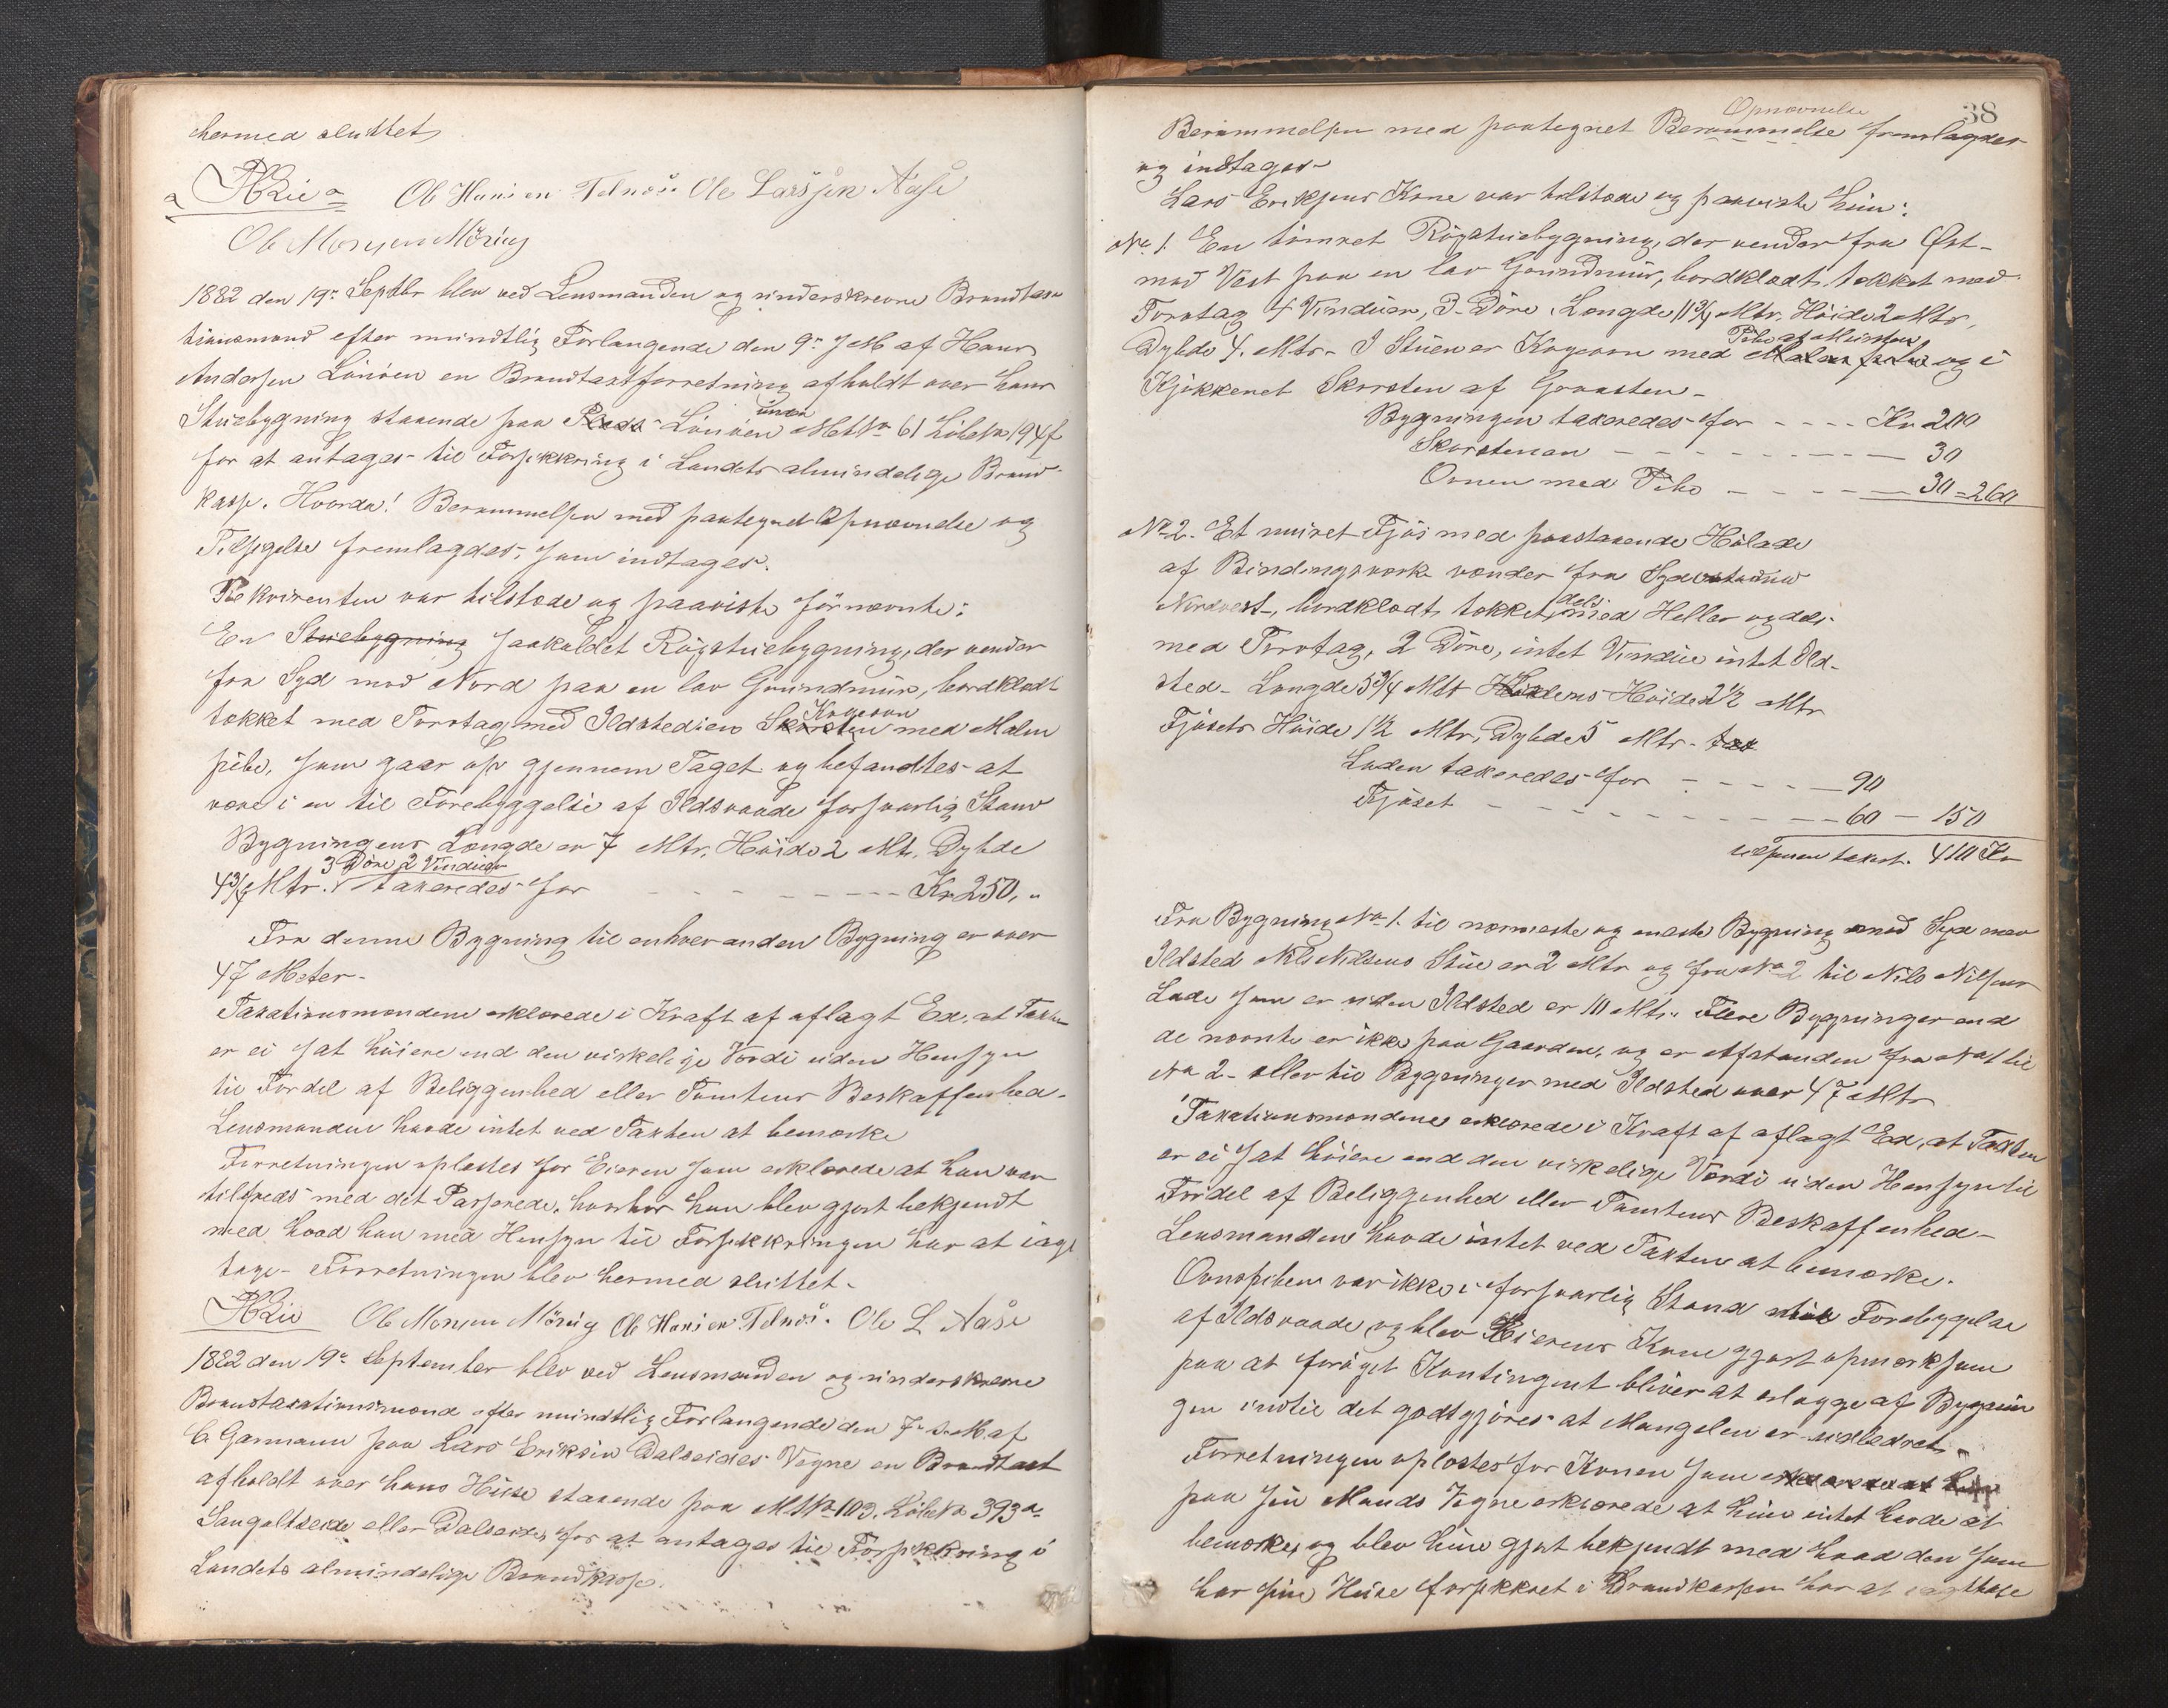 hermed sluttet
Ole Hansen Telnæs Ole Larssen Aase
Ole Monsen Möring
1882 den 19de Septbr blev ved Lensmanden og underskrevne Brandtaxa
tionsmænd efter mundtlig Forlangende den 9de ds M af Hans
Andersen Lönöen en Brandtaxtforretning afholdt over hans
Stuebygning staaende paa Plads Lönöen under MtNo 61 LöbeNo 194f
for at antages til Forsikkring i Landets almindelige Brand
kasse. Hvorda! Berammelsen med paategnet Opnævnelse og
Tilsigelse fremlagdes, som indtages.
Rekvirenten var tilstede og paaviste förnævnte:
En Stuebygning saakaldet Rögstuebygning, der vender
fra Syd mod Nord paa en lav Grundmur, bordklædt
tækket med Torvtag med Ildstedien Skorsten Kogeovn med Malm
pibe, som gaar op gjennem Taget og befandtes at
være i en til Forebyggelse af Ildsvaade forsvarlig Stand
Bygningens Længde er 7 Mtr. Höide 2 Mtr. Dybde
4 3/4 Mtr. 3 Döre 2 Vinduer taxeredes for - - - - - - Kr 250,"
Fra denne Bygning til enhver anden Bygning er over
47 Meter-
Taxationsmændene erklærede i Kraft af aflagt Ed, at Taxten
er ei sat höiere end den virkelige Værdi uden Hensyn
til Fordel af Beliggenhed eller Tomtens Beskaffenhed-
Lensmanden havde intet ved Taxten at bemærke
Forretningen oplæstes for Eieren som erklærede at han var
tilfreds med det Passerede, hvorhos han blev gjort bekjendt
med hvad han med Hensyn til Forsikkringen har at iagt
tage- Forretningen blev hermed sluttet-
Ole Monsen Möring Ole Hansen Telnæs. Ole L Aase
1882 den 19de September blev ved Lensmanden og underskrevne
Brandtaxationsmænd efter mundtlig Forlangende den 7de d.M. af
C. Garmann paa Lars Eriksen Dalseides Vegne en Brandtaxt
afholdt over hans Huse staaende paa MtNo 103. LöbeNo 393a
Saugoltseide eller Dalseide, for at antages til Forsikkring i
Landets almindelige Brandkasse.
38
Opnævnelse
Berammelsen med paategnet Berammelse fremlagdes
og indtages-
Lars Eriksens Kone var tilstede og paaviste hun:
No 1. En tömret Rögstuebygning, der vender fra Öst-
mod Vest paa en lav Grundmur, bordklædt, tækket med
Torvtag 4 Vinduer, 3 Döre, Længde 11 3/4 Mtr. Höide 2 Mtr,
Dybde 4. Mtr- I Stuen er Kogeovn med Pibe af Mursten og i
Kjökkenet Skorsten af Graasten-
Bygningen taxeredes for - - - - Kr 200
Skorstenen - - - - - - - - - 30
Ovnen med Pibe - - - - - 30 = 260
No 2. Et muret Fjös med paastaaende Hölade
af Bindingsværk vender fra Sydost mod
Nordvest-, bordklædt, tækket dels med Heller og dels
med Torvtag, 2 Döre, intet Vindue intet Ild-
sted- Længde 5 3/4 Mtr Ladens Höide 2 1/2 Mtr
Fjösets Höide 1 1/2 Mtr, Dybde 5 Mtr- tax
Laden taxeredes for - - - - 90
Fjöset - - - - - - - - - 60 - 150
tilsammen taxt. 410 Kr
Fra Bygning No 1. til nærmeste og eneste Bygning mod Syd med
Ildsted Nils Nilsens Stue er 2 Mtr og fra No 2 til Nils Nilsens
Lade som er uden Ildsted er 10 Mtr. Flere Bygninger end
de nævnte er ikke paa Gaarden, og er Afstanden fra No 1 til
No 2- eller til Bygninger med Ildsted over 47 Mtr
Taxationsmændene erklærede i Kraft af aflagt Ed, at Taxten
er ei sat höiere end den virkelige Værdi uden Hensyn til
Fordel af Beliggenhed eller Tomtens Beskaffenhed-
Lensmanden havde intet ved Taxten at bemærke.
Ovnspiben var ikke i forsvarlig Stand til Forebyggelse
af Ildsvaade og blev Eierens Kone gjort opmærksom
paa at foröget Kontingent bliver at erlægge af Bygnin
gen indtil det godtgjöres at Mangelen er udbedret-
Forretningen oplæstes for Konen som erklærede at hun
paa sin Mands Vegne erklærede at hun intet havde at
bemærke, og blev hun gjort bekjendt med hvad den som
har sine Huse forsikkret i Brandkassen har at iagttage